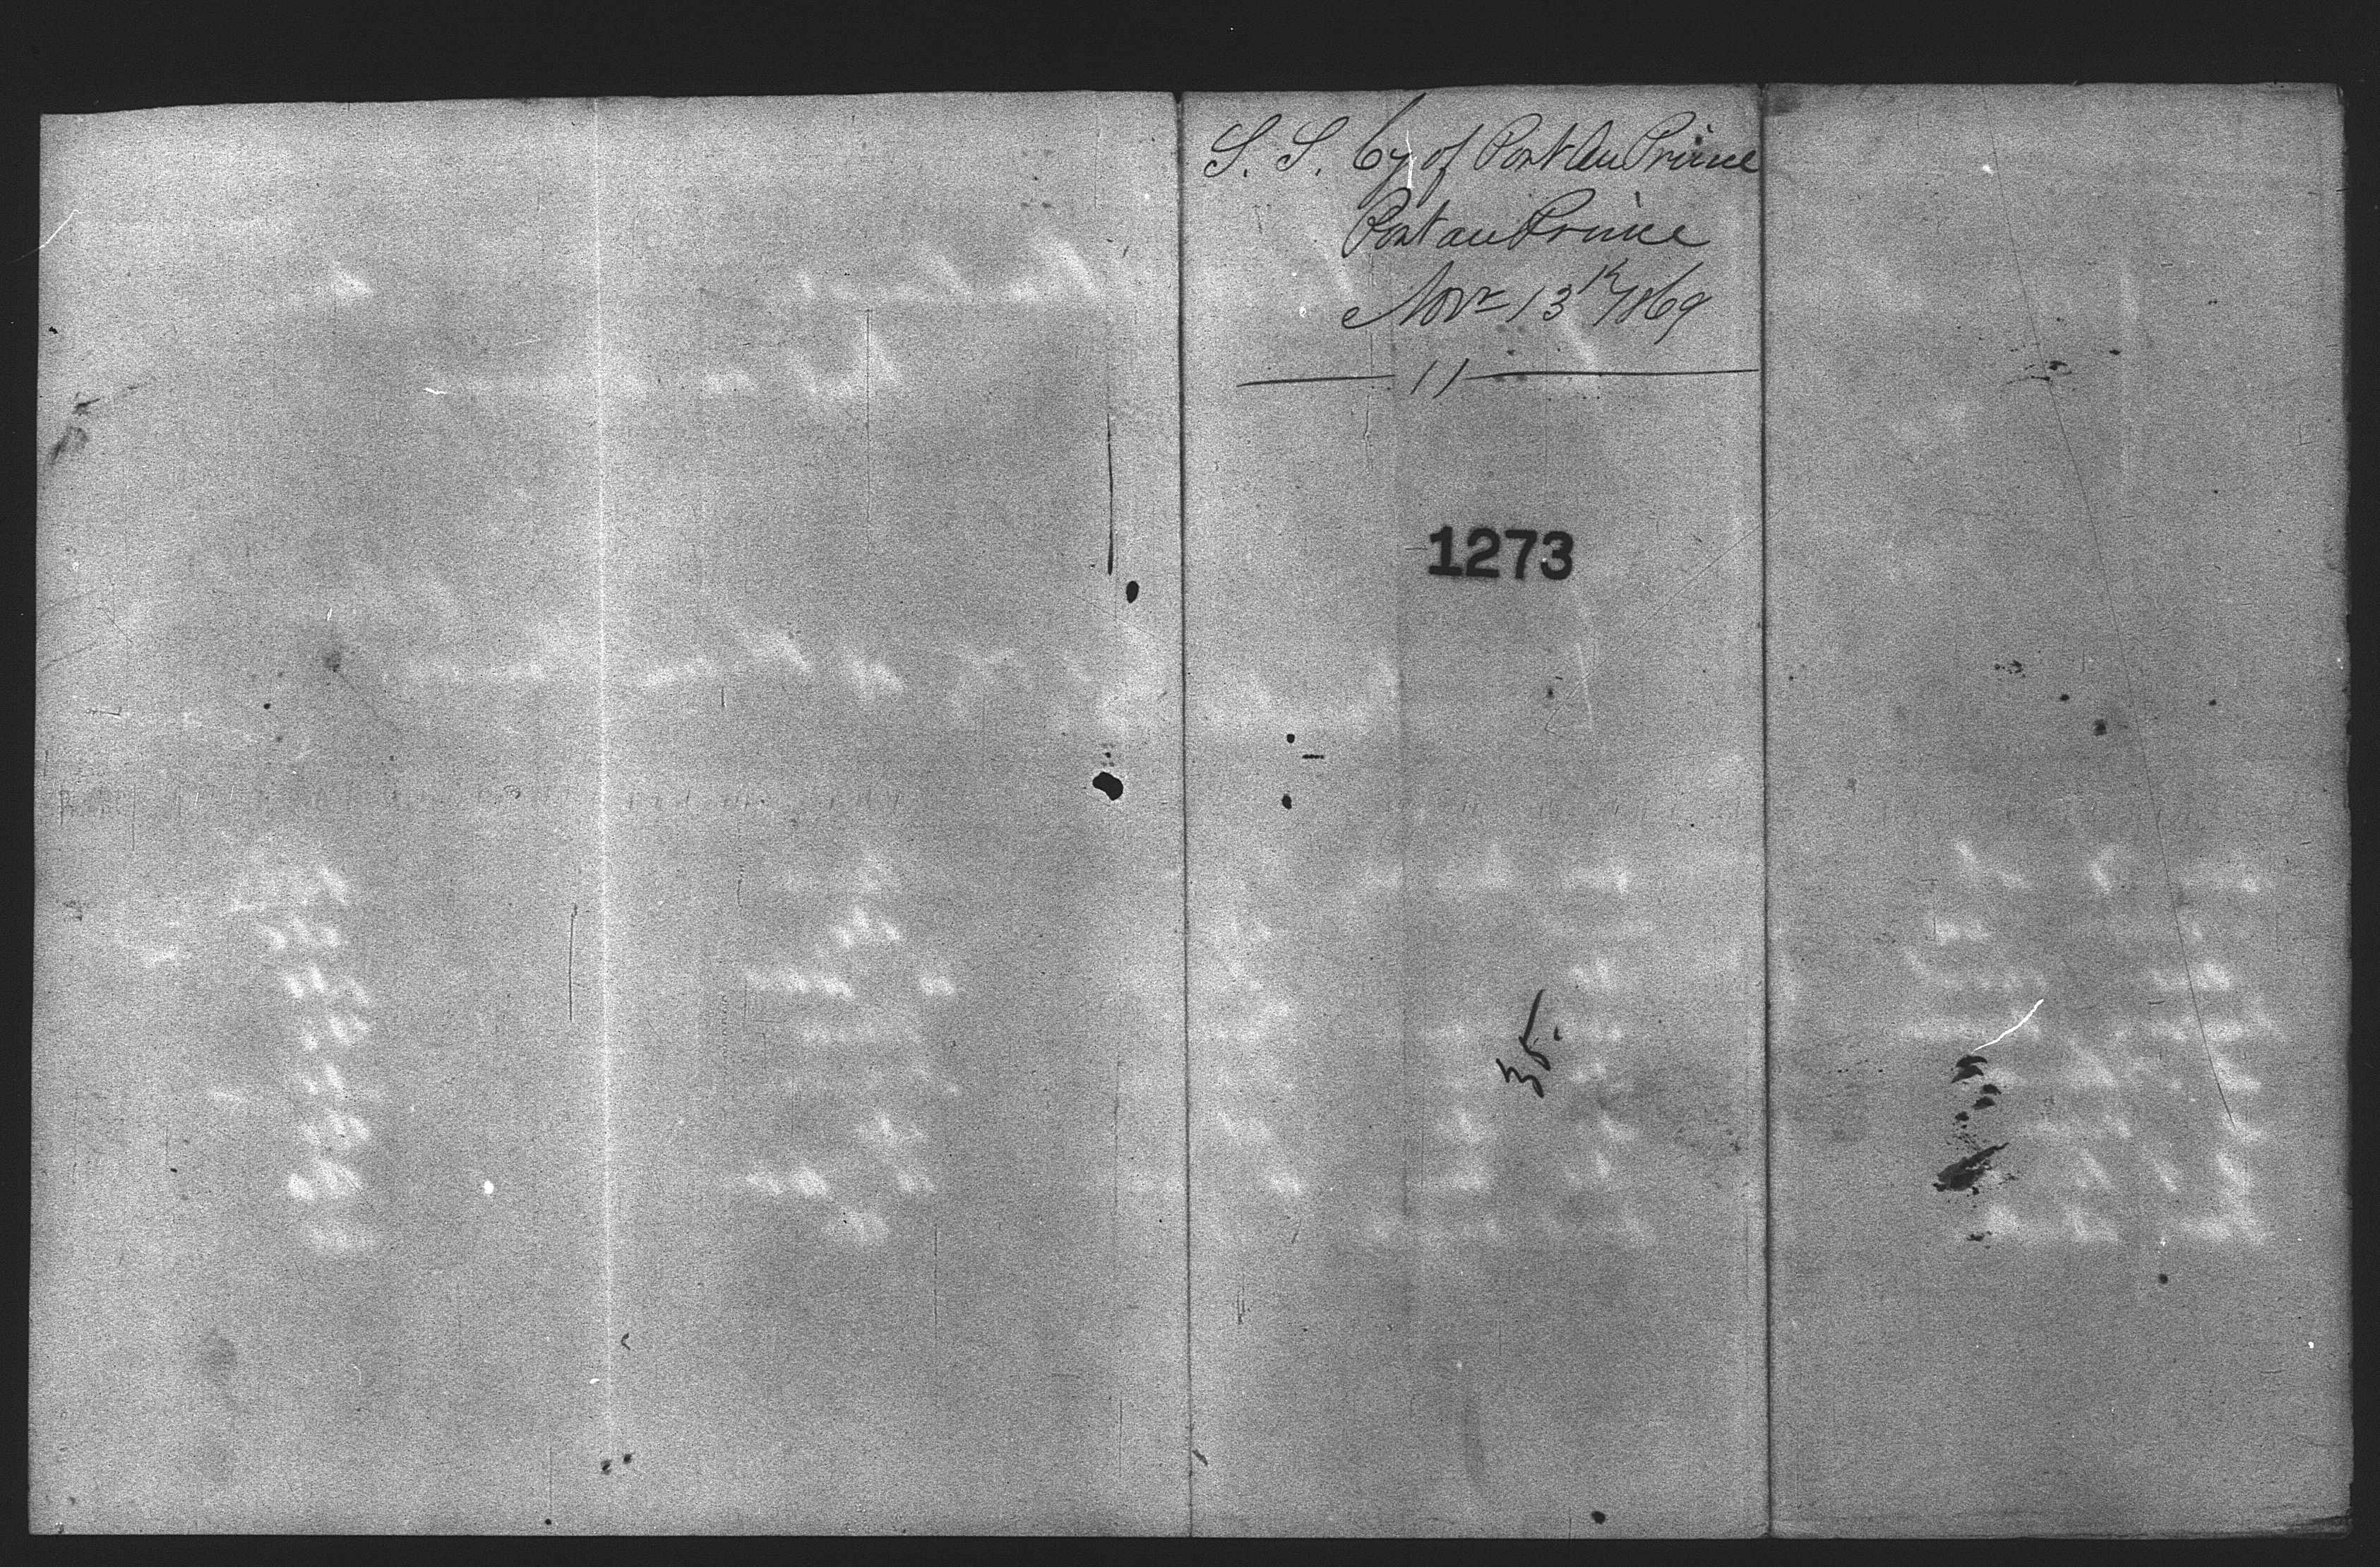 S. S. Cy of Port Au Prince
Port au Prince
Novr 13th 1869
11
1273
35.